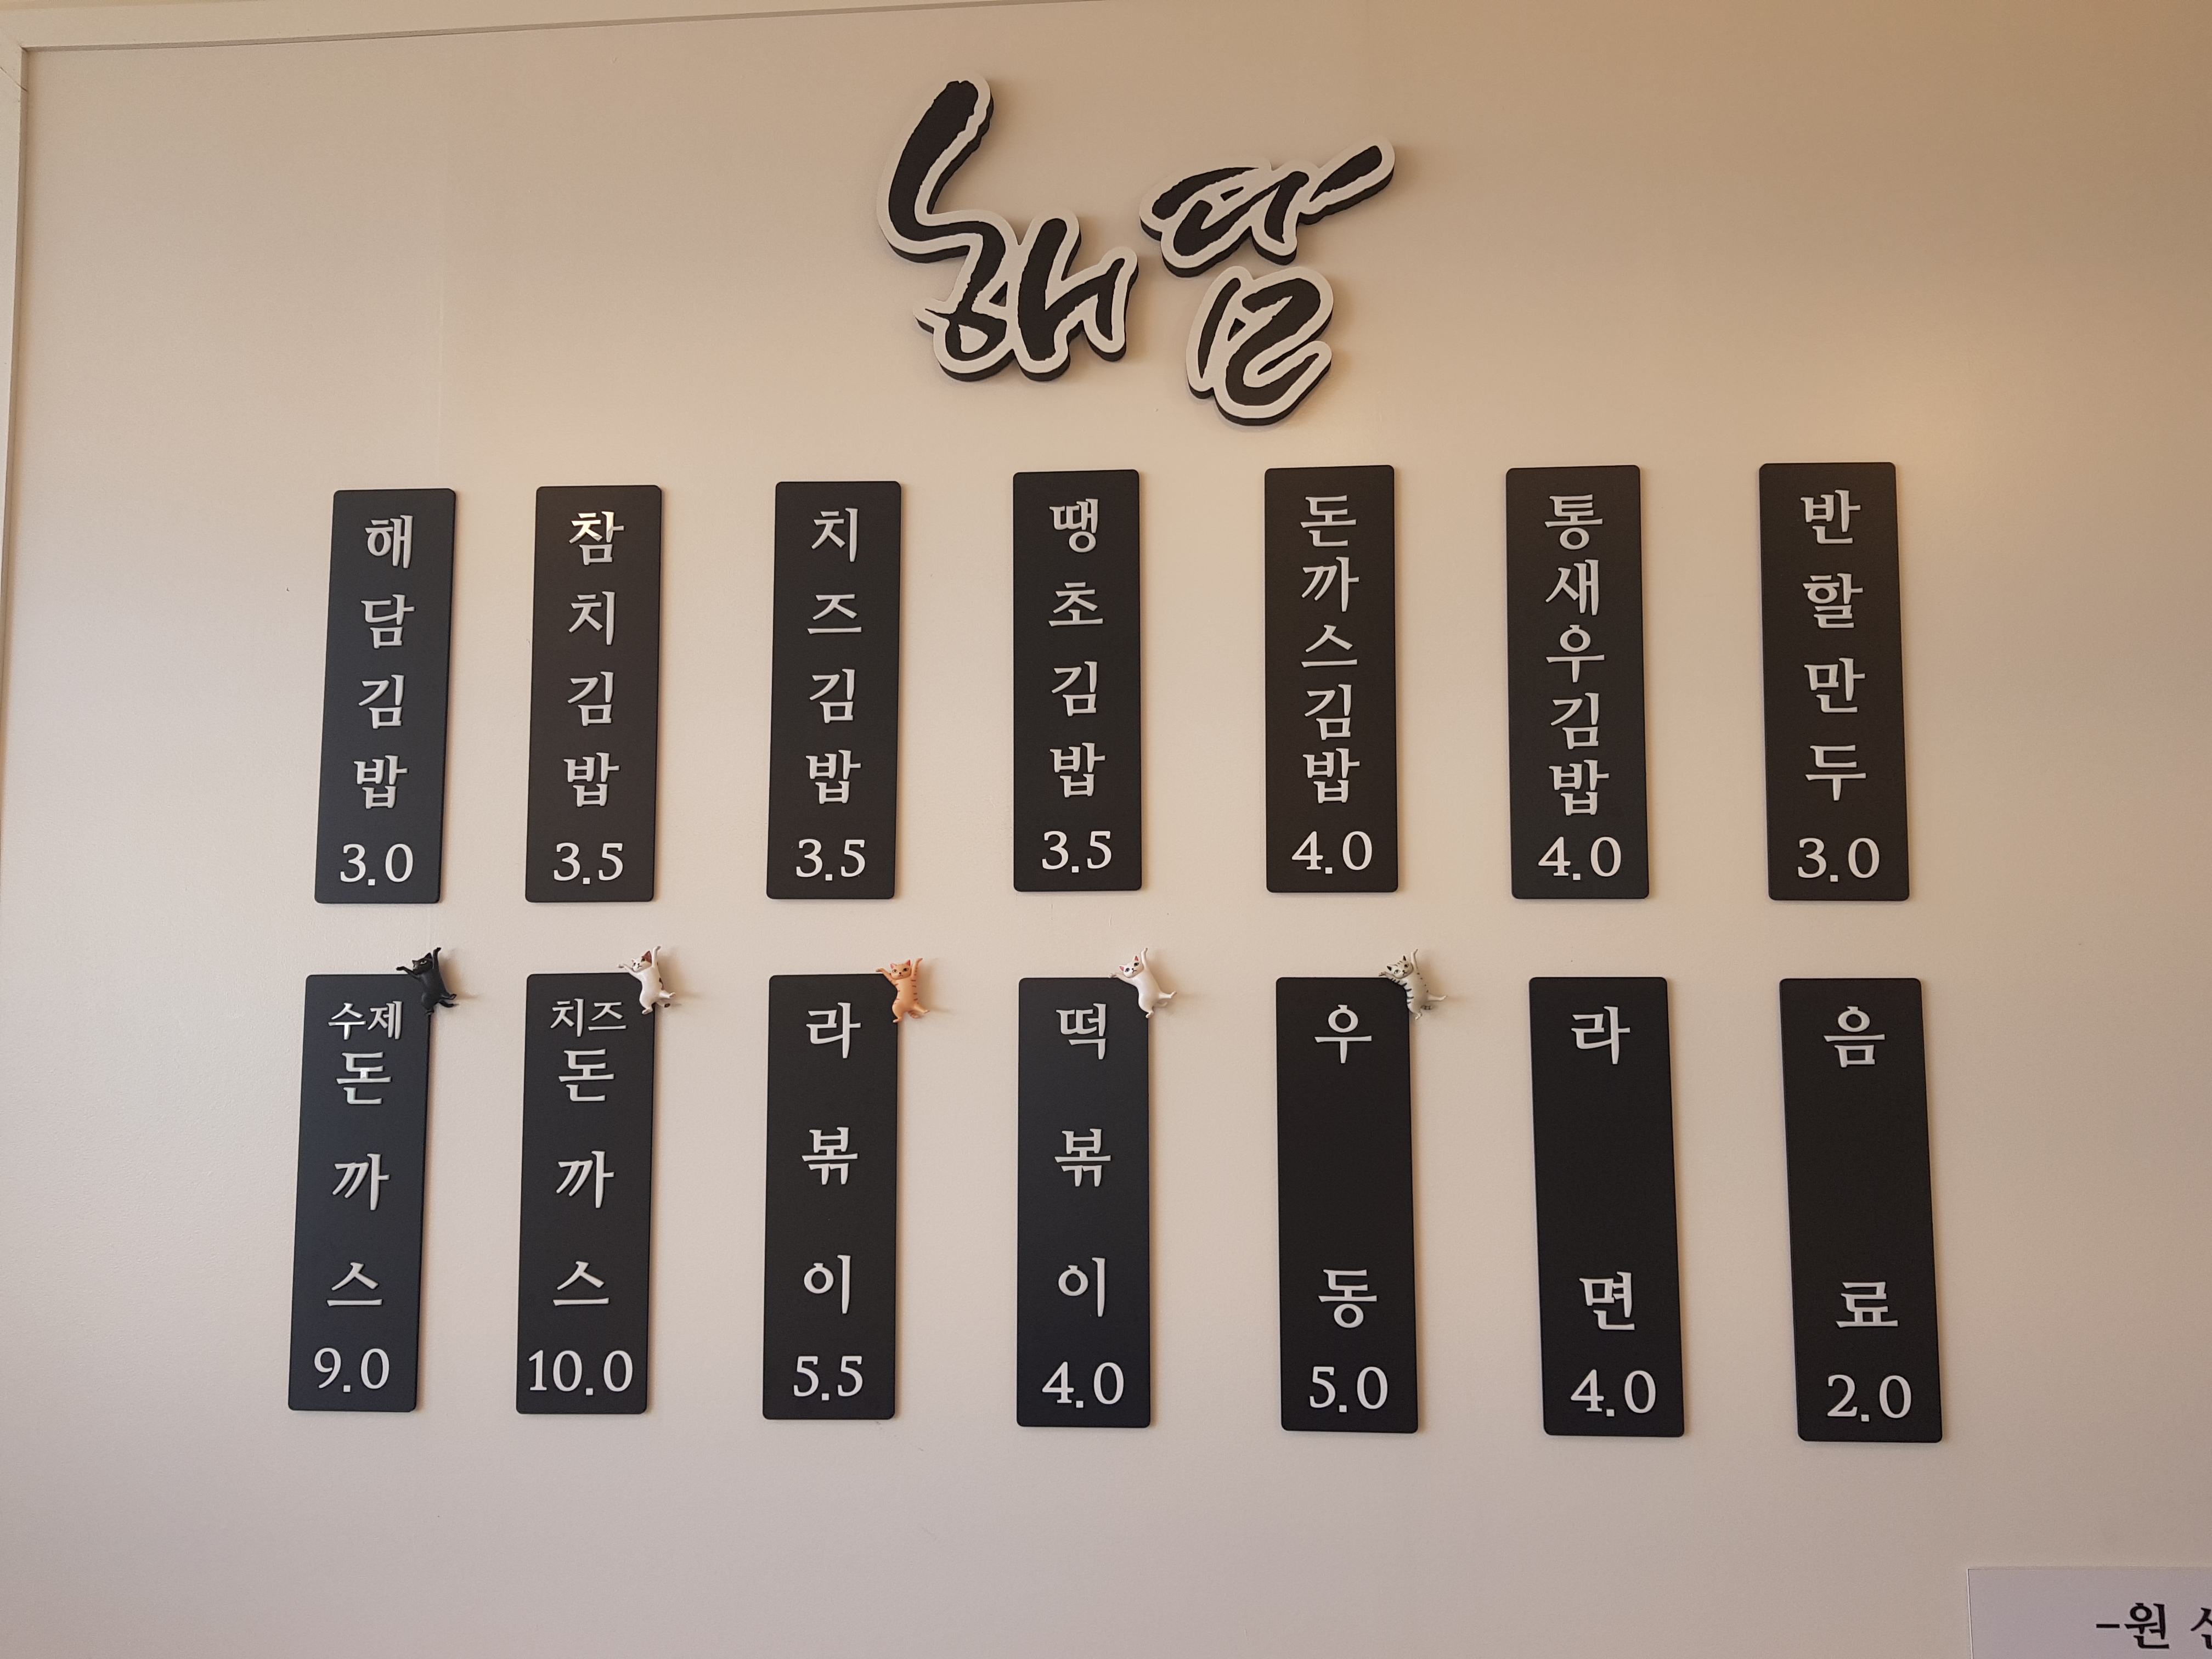 해담
해담김밥 3.0
참치김밥 3.5
치즈김밥 3.5
땡초김밥 3.5
돈까스김밥 4.0
통새우김밥 4.0
반할만두 3.0
수제돈까스 9.0
치즈돈까스 10.0
라볶이 5.5
떡볶이 4.0
우동 5.0
라면 4.0
음료 2.0
-원